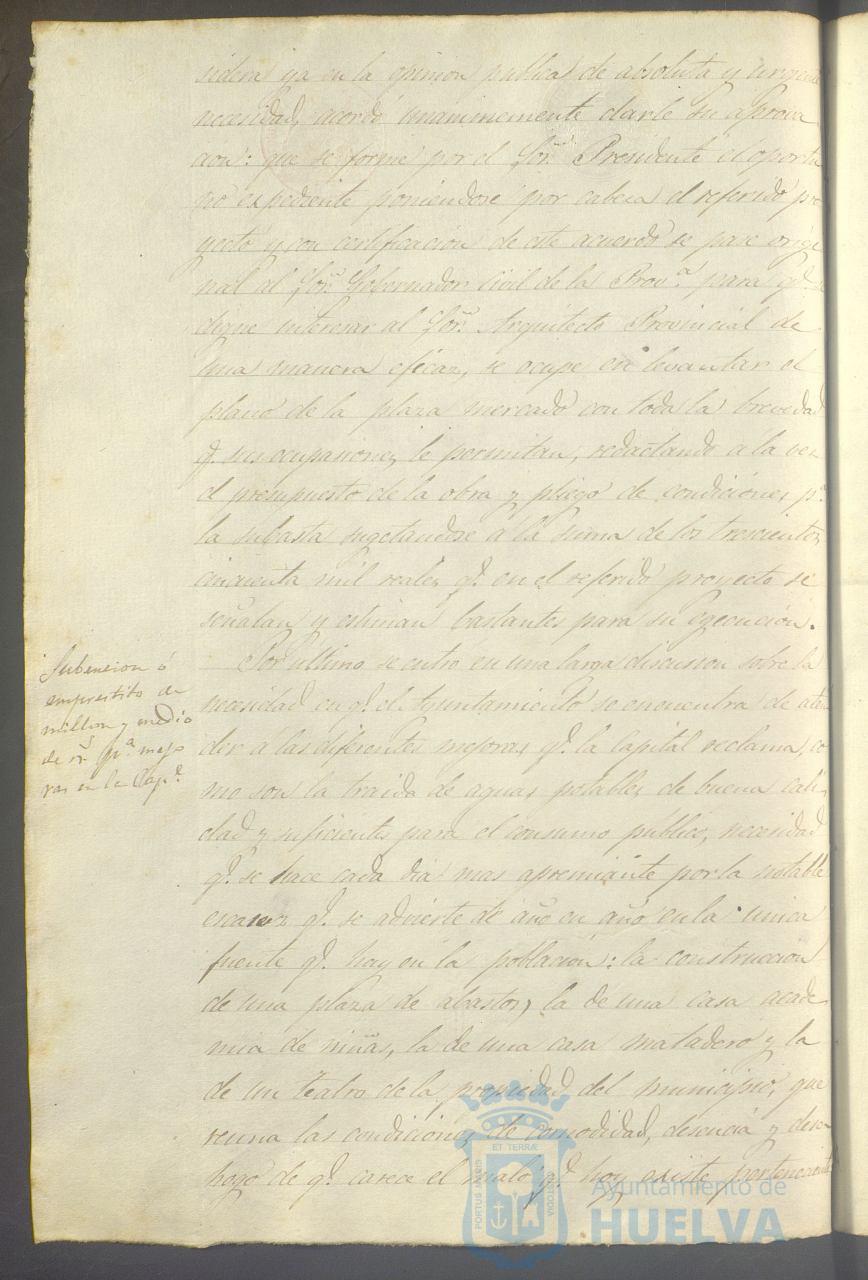 sidera ya en la opinion publica de absoluta y urgente
necesidad, acordó unanimemente darle su aprova
cion: que se forme por el Sor. Presidente el oportu
no expediente poniendose por cabeza el referido pro
yecto y con certificacion de este acuerdo se pase origi
nal al Sor. Gobernador Civil de la Prov.a para q.e se
digne interesar al Sor. Arquitecto Provincial de
una manera eficaz, se ocupe en levantar el
plano de la plaza mercado con toda la brevedad
q.e sus ocupaciones le permitan, redactando a la vez
el presupuesto de la obra y pliego de condiciones p.a
la subasta sugetandose á la suma de los trescientos
cincuenta mil reales q.e en el referido proyecto se
señalan y estiman bastantes para su egecucion.
Subencion ó
emprestito de
millon y medio
de rs. pa. mejo
ras en la Cap.l
Por último se entro en una larga discusion sobre la
necesidad en q.e el Ayuntamiento se encuentra de aten
der á las diferentes mejoras q.e la Capital reclama, co
mo son la traida de aguas potables de buena cali
dad y suficientes para el consumo público, necesidad
q.e se hace cada dia mas apremiante por la notable
escasez q.e se advierte de año en año en la unica
fuente q.e hay en la poblacion: la construccion
de una plaza de abastos, la de una casa acade
mia de niñas, la de una casa matadero y la
de un teatro de la propiedad del municipio, que
reuna las condiciones de comodidad, desencia y desa
hogo de q.e carece el malo q.e hoy existe perteneciente
PORTUS MARIS
ET TERRÆ
CUSTODIA
Ayuntamiento de
HUELVA